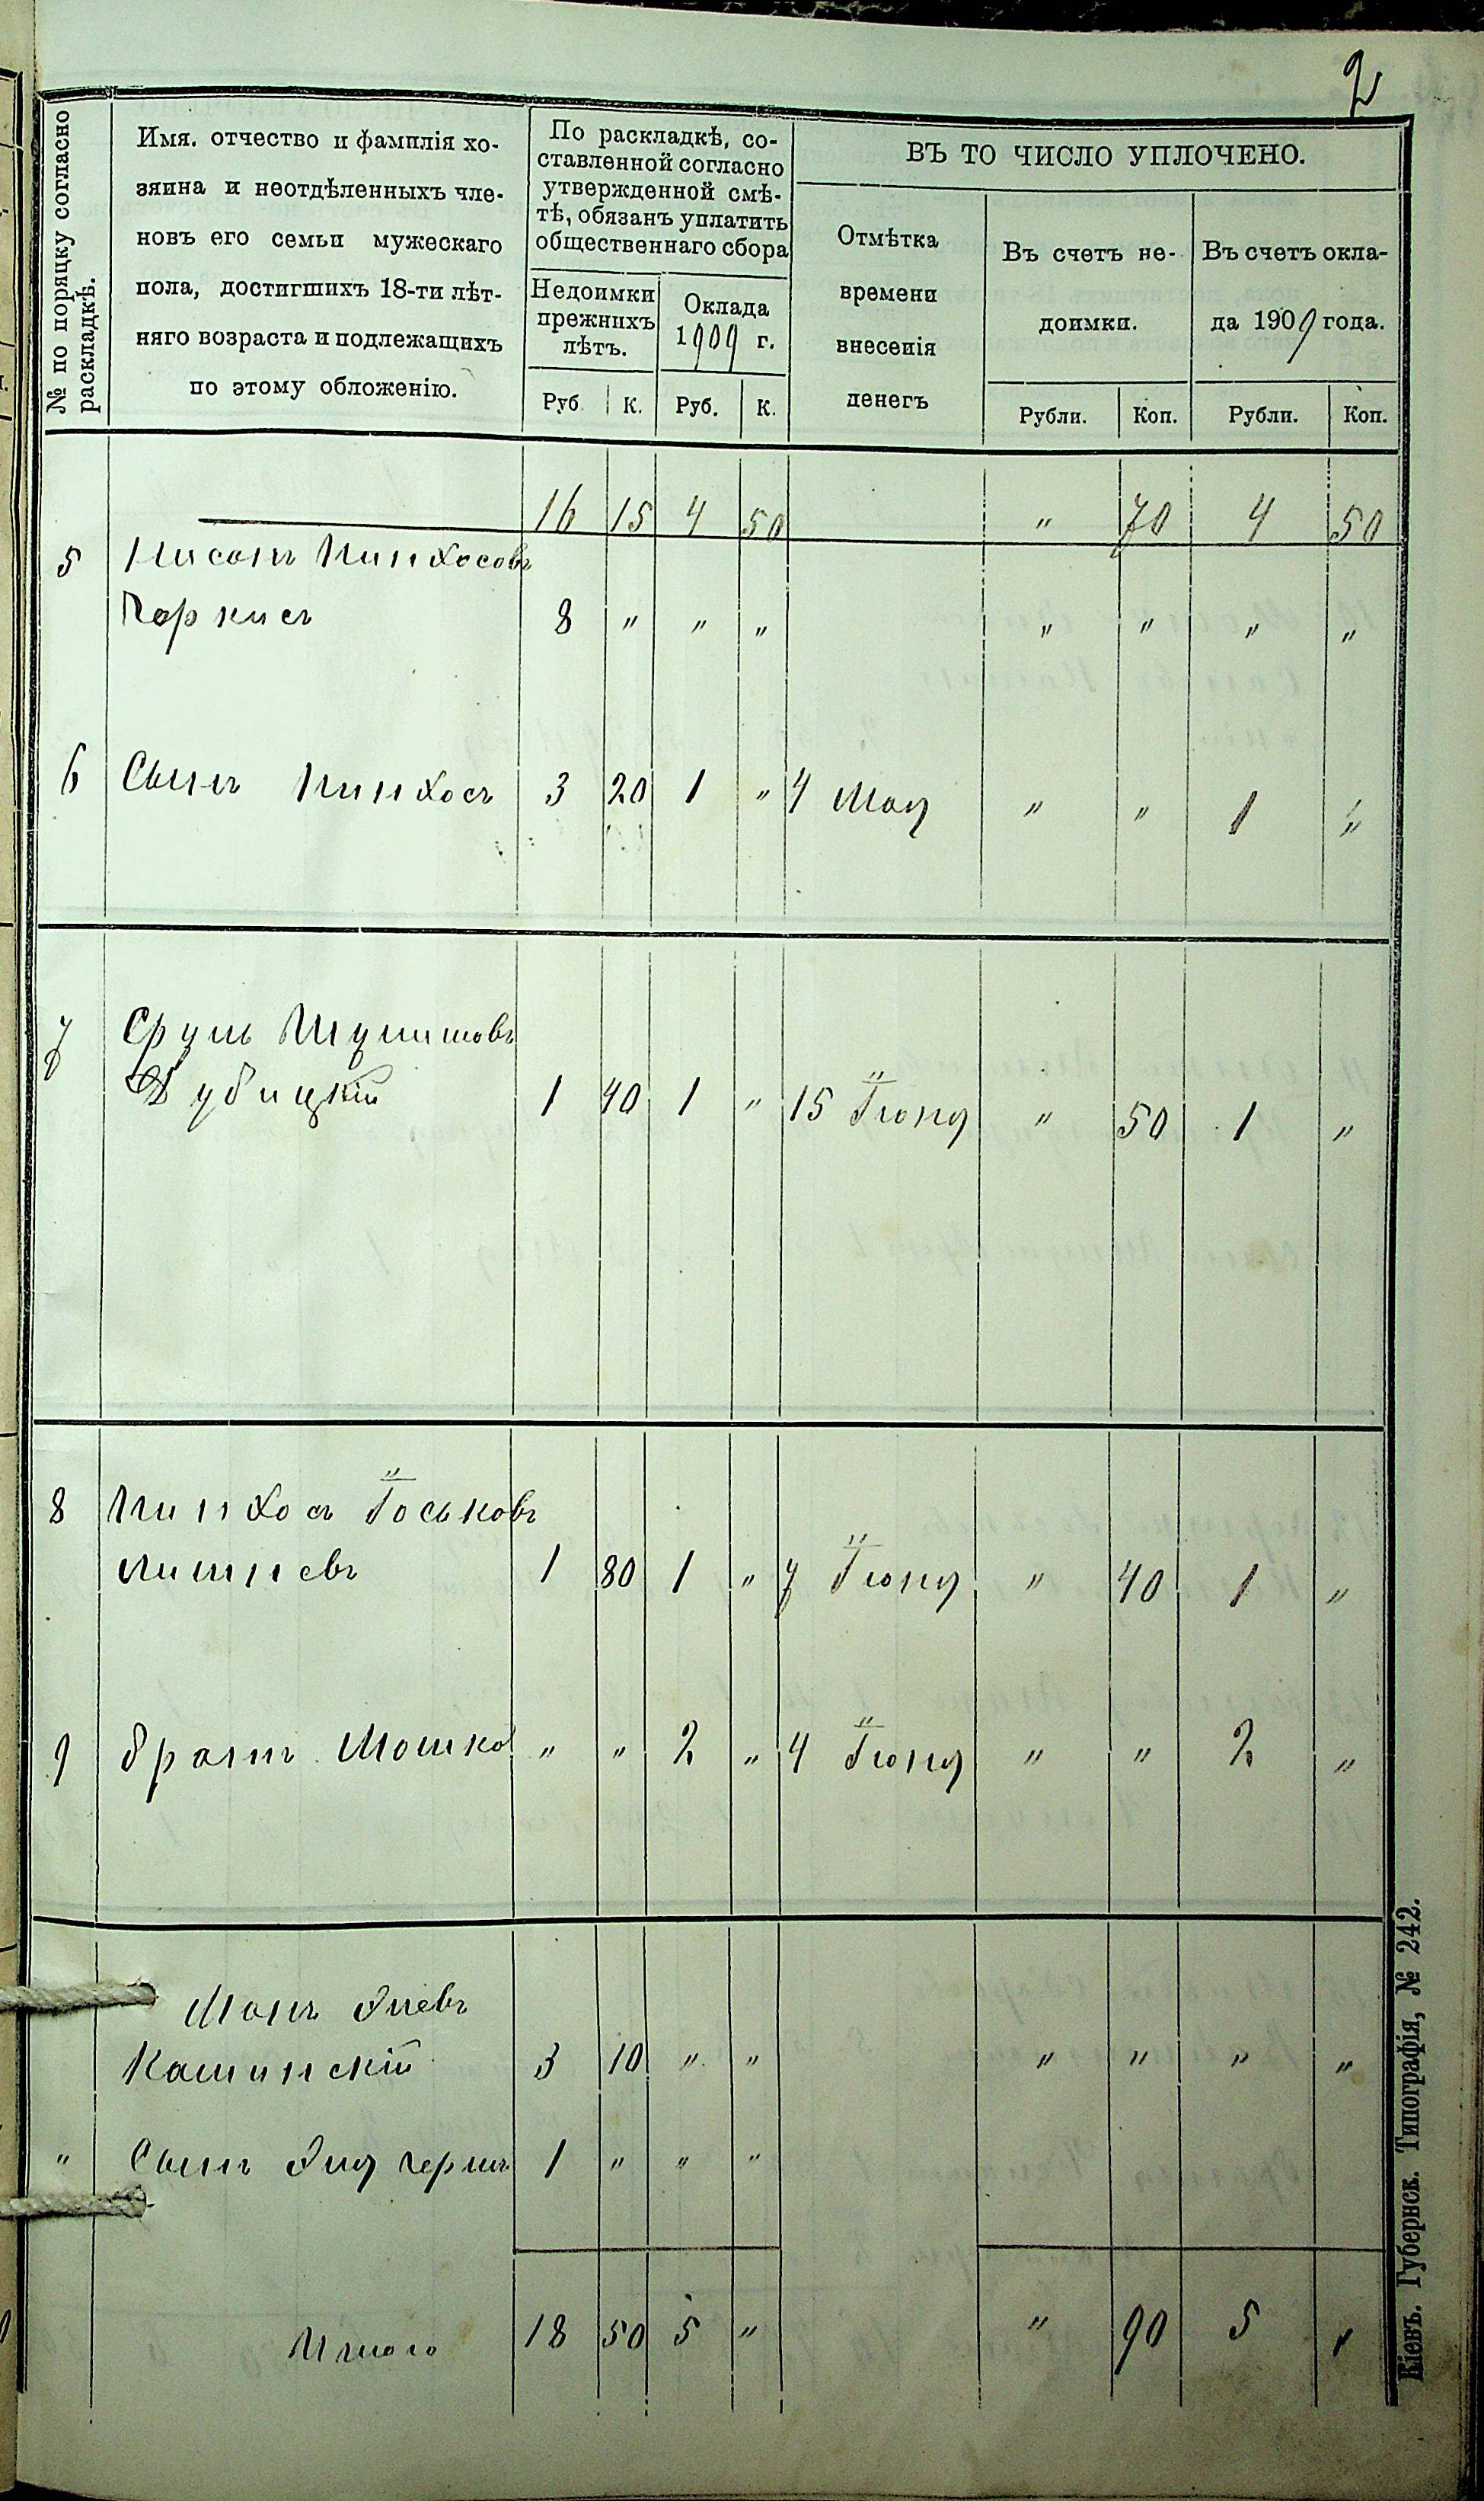 2
№ по порядку согласно
раскладкѣ.
Имя. отчество и фамилія хо-
зяина и неотдѣленныхъ чле-
новъ его семьи мужескаго
пола, достигшихъ 18-ти лѣт-
няго возраста и подлежащихъ
по этому обложенію.
По раскладкѣ, со-
ставленной согласно
утвержденной смѣ-
тѣ, обязанъ уплатить
общественнаго сбора
Недоимки
прежнихъ
лѣтъ.
Оклада
1909 г.
Руб. К. Руб. К.
ВЪ ТО ЧИСЛО УПЛОЧЕНО.
Отмѣтка
времени
внесенія
денегъ
Въ счетъ не-
доимки.
Въ счетъ окла-
да 1909 года.
Рубли. Коп. Рубли. Коп.
16 15 4 50 " 70 4 50
5 Нисонъ Пинхосовъ
Чоркисъ 8 " " " " " " "
6 Сынъ Пинхосъ 3 20 1 " 4 Мая " " 1 "
7 Сруль Шулимовъ
Дубицкій 1 40 1 " 15 Іюня " 50 1 "
8 Пинхосъ Іоськовъ
Лишневъ 1 80 1 " 7 Іюня " 40 1 "
9 братъ Мошко " " 2 " 4 Іюня " " 2 "
Кашинскій 3 10 " " " " " "
" Сынъ 1 " " "
Итого 18 50 5 " " 90 5 "
Кіевъ. Губернск. Типографія, № 242.